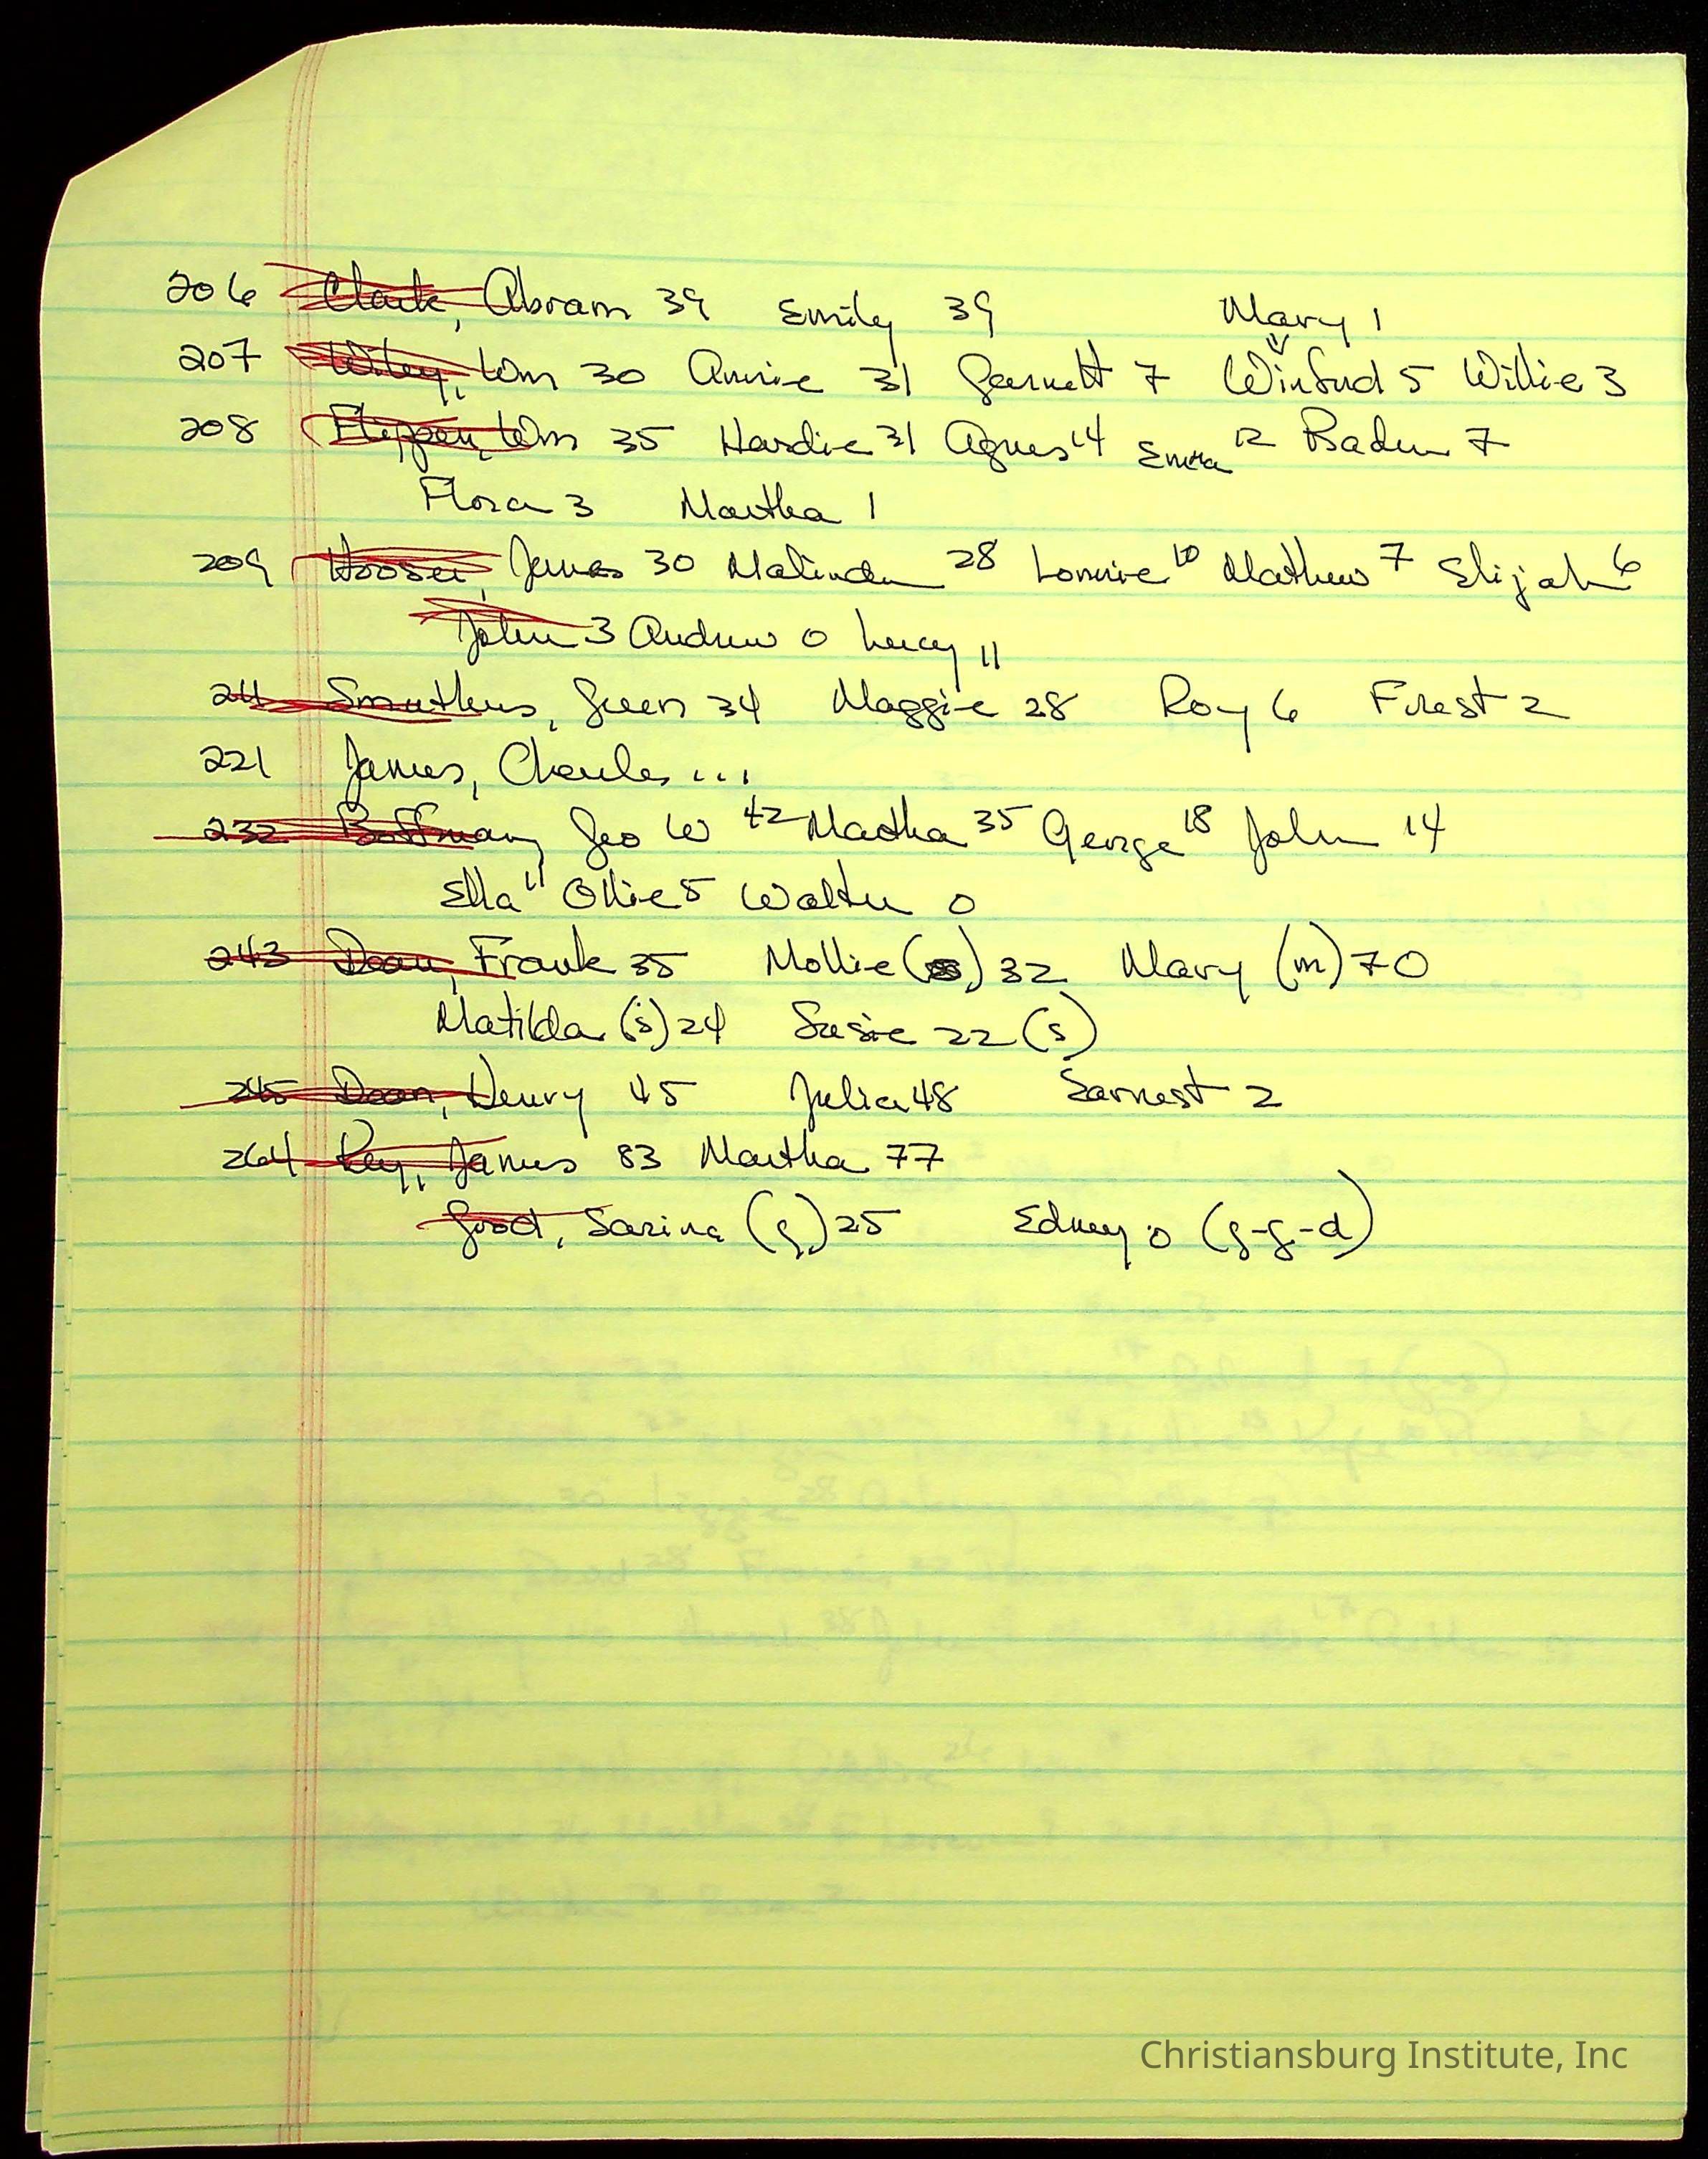 206 Clark, Abram 39 Emily 39 Mary 1
207 Wiley, Wm 30 Annie 31 Garnett 7 Winfred 5 Willie 3
208 Flippen, Wm 35 Hardie 31 Agnes 14 Emma 12 Baden 7
Flora 3 Martha 1
209 Hooser, James 30 Malinda 28 Lonnie 10 Mathew 7 Elijah 6
John 3 Andrew 0 Lucy 11
211 Smithers, Green 34 Maggie 28 Roy 6 Frest 2
221 James, Charles ...
232 Boffman, Geo W 42 Martha 35 George 18 John 14
Ella 11 Ollie 5 Walter 0
243 Dean, Frank 35 Mollie (s) 32 Mary (m) 70
Matilda (s) 24 Susie 22 (s)
245 Dean, Henry 45 Julia 48 Earnest 2
264 Key, James 83 Martha 77
Good, Sarina (g) 25 Edney 0 (g-g-d)
Christiansburg Institute, Inc